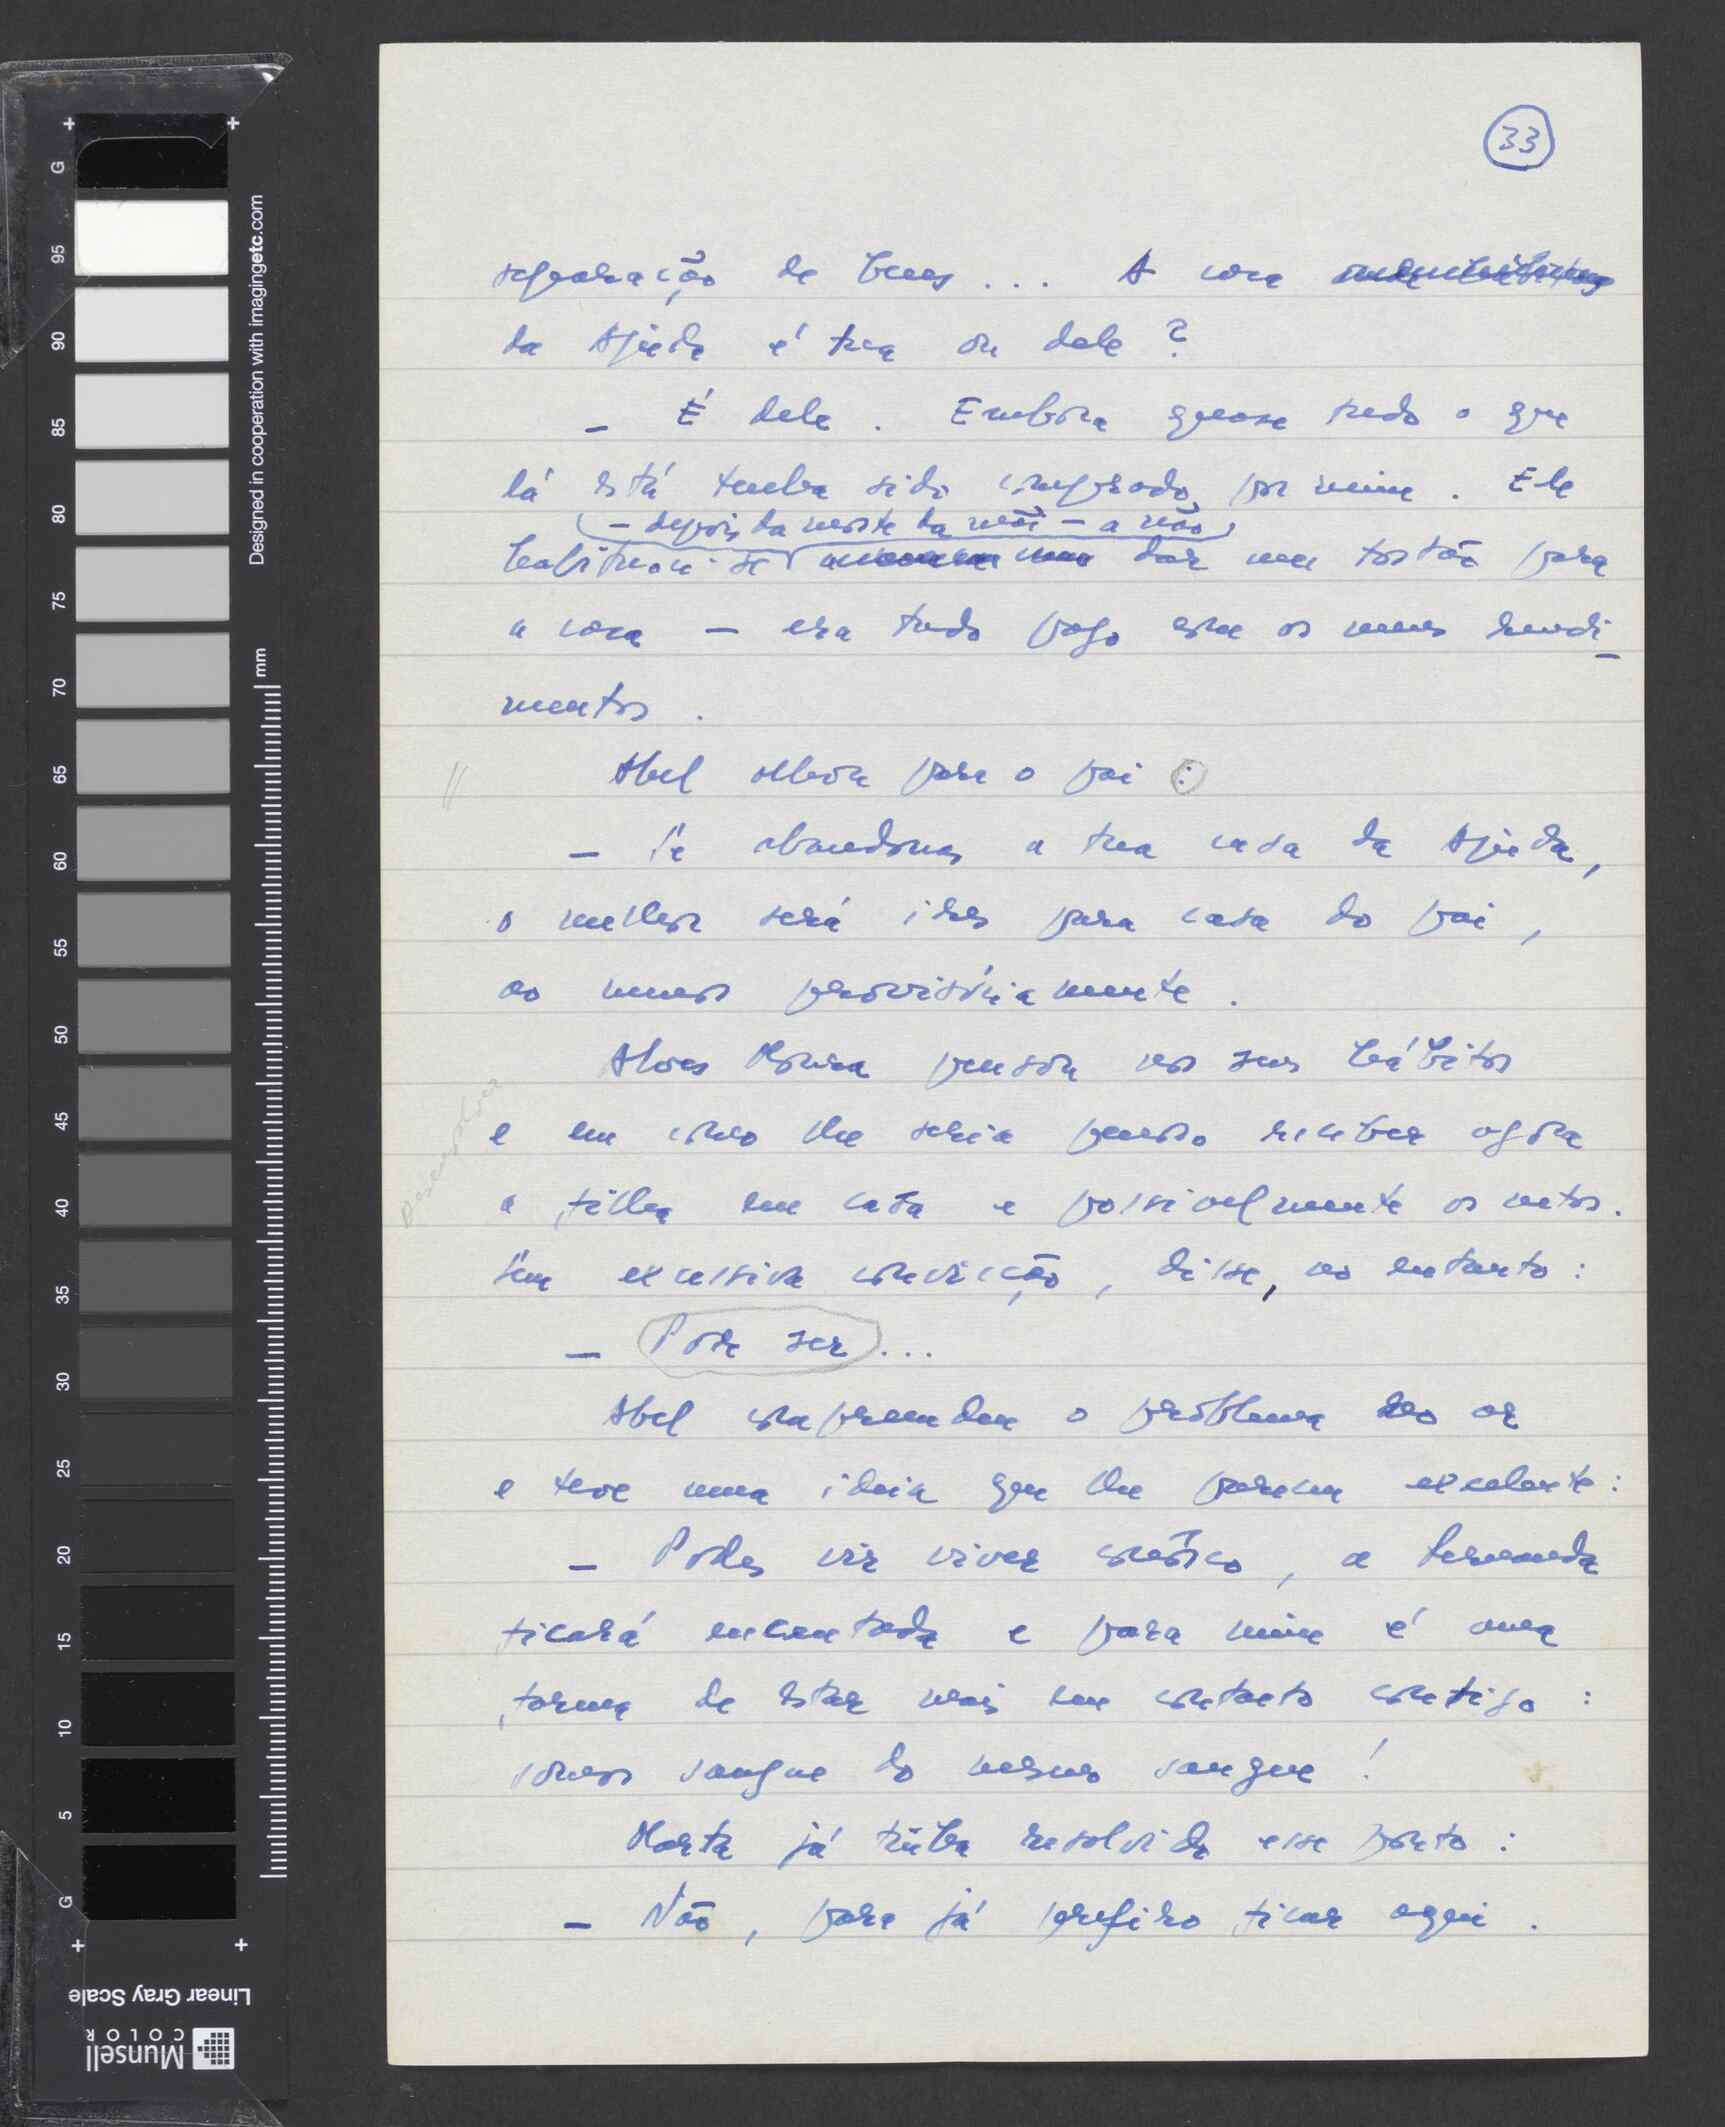 33
separação de bens... A casa
da Ajuda é tua ou dele?
— É dele. Embora quase tudo o que
lá está tenha sido comprado por mim. Ele
— depois da morte da mãi — a não
habituou-se dar um tostão para
a casa — era tudo pago com os meus rendi-
mentos.
Abel olhou para o pai:
— Se abandonas a tua casa da Ajuda,
o melhor será ires para casa do pai,
ao menos provisóriamente.
Alves Moura pensou nos seus hábitos
e em como lhe seria penoso receber agora
Desenvolver
a filha em casa e possivelmente os netos.
Sem excessiva convicção, disse, no entanto:
— Pode ser...
Abel compreendeu o problema no ar
e teve uma ideia que lhe pareceu excelente:
— Podes vir viver conôsco, a Fernanda
ficará encantada e para mim é uma
forma de estar mais em contacto contigo:
somos sangue do mesmo sangue!
Marta já tinha resolvido esse ponto:
— Não, para já prefiro ficar aqui.
G
95
90
85
80
75
70
65
60
55
50
45
40
35
30
25
20
15
10
5
G
Designed in cooperation with imagingetc.com
mm
Linear Gray Scale
Munsell
COLOR